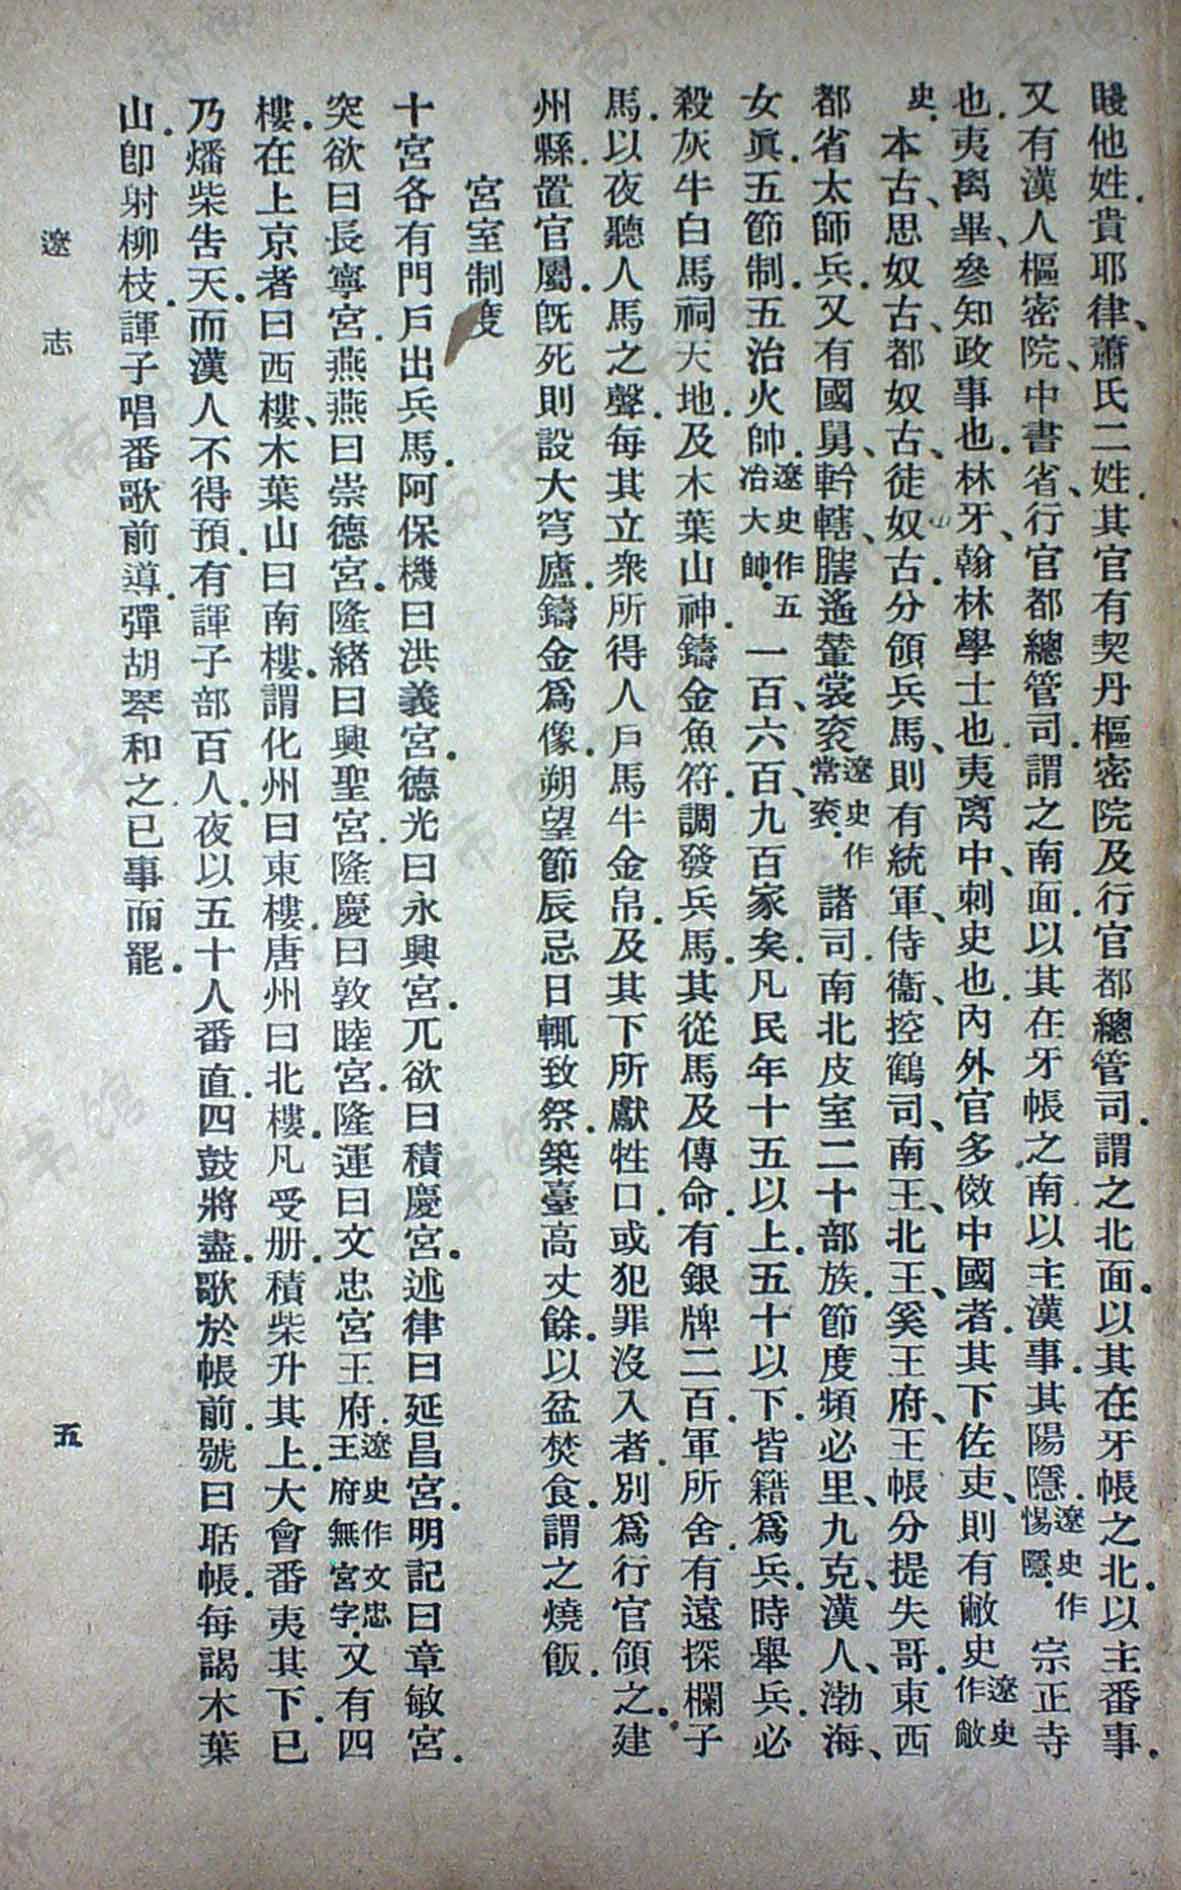 賤他姓.貴耶律、蕭氏二姓.其官有契丹樞密院及行官都總管司.謂之北面.以其在牙帳之北.以主番事.
又有漢人樞密院、中書省、行官都總管司.謂之南面.以其在牙帳之南.以主漢事.其陽隱.遼史作惕隱.宗正寺
也.夷离畢、參知政事也.林牙、翰林學士也.夷离中、刺史也.內外官多傚中國者.其下佐吏、則有敝史遼史作敞
史.本古、思奴古、都奴古、徒奴古.分領兵馬、則有統軍、侍衞、控鶴司、南王、北王、奚王府、王帳分提失哥.東西
都省太師兵.又有國舅、䡎轄、𦞠遙輦裳衮遼史作常衮.諸司.南北皮室二十部族.節度頻必里、九克、漢人、渤海、
女眞.五節制.五治火帥.遼史作五冶大帥.一百、六百、九百家矣.凡民年十五以上.五十以下.皆籍爲兵.時舉兵.必
殺灰牛白馬祠天地.及木葉山神.鑄金魚符.調發兵馬.其從馬及傳命.有銀牌二百.軍所舍.有遠探欄子
馬.以夜聽人馬之聲.每其立衆所得人戶馬牛金帛.及其下所獻牲口.或犯罪沒入者.別爲行官領之.建
州縣.置官屬.旣死則設大穹廬.鑄金爲像.朔望節辰忌日.輒致祭.築臺高丈餘.以盆焚食.謂之燒飯.
宮室制度
十宮各有門戶出兵馬.阿保機曰洪義宮.德光曰永興宮.兀欲曰積慶宮.述律曰延昌宮.明記曰章敏宮.
突欲曰長寧宮.燕燕曰崇德宮.隆緒曰興聖宮.隆慶曰敦睦宮.隆運曰文忠宮王府.遼史作文忠王府無宮字.又有四
樓.在上京者曰西樓、木葉山曰南樓.謂化州曰東樓.唐州曰北樓.凡受册.積柴升其上.大會番夷其下.已
乃燔柴告天.而漢人不得預.有諢子部百人.夜以五十人番直.四鼓將盡.歌於帳前.號曰聒帳.每謁木葉
山.卽射柳枝.諢子唱番歌前導.彈胡琴和之.已事而罷.
遼志
五